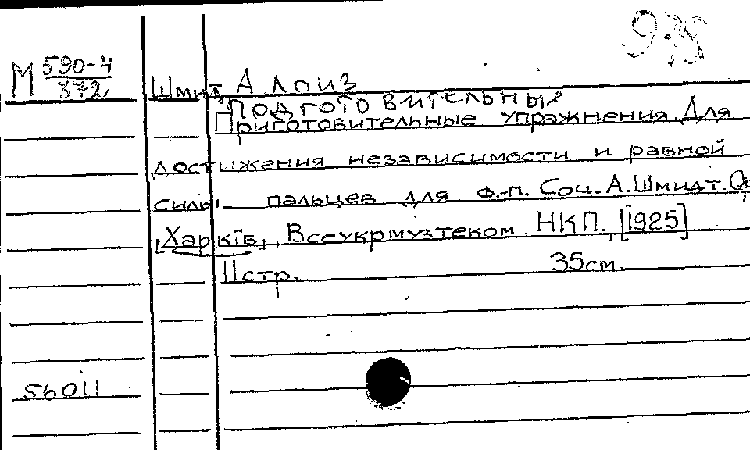 М 590-4
372
Шмит Алоиз
Подготовительные
Приготовительные упражнения для
достижения независимости и равной
силы пальцев для ф.-п. Соч. А. Шмидт.
[Харків], Всеукрмузтеком НКП, [1925]
11 стр. 35 см.
56011